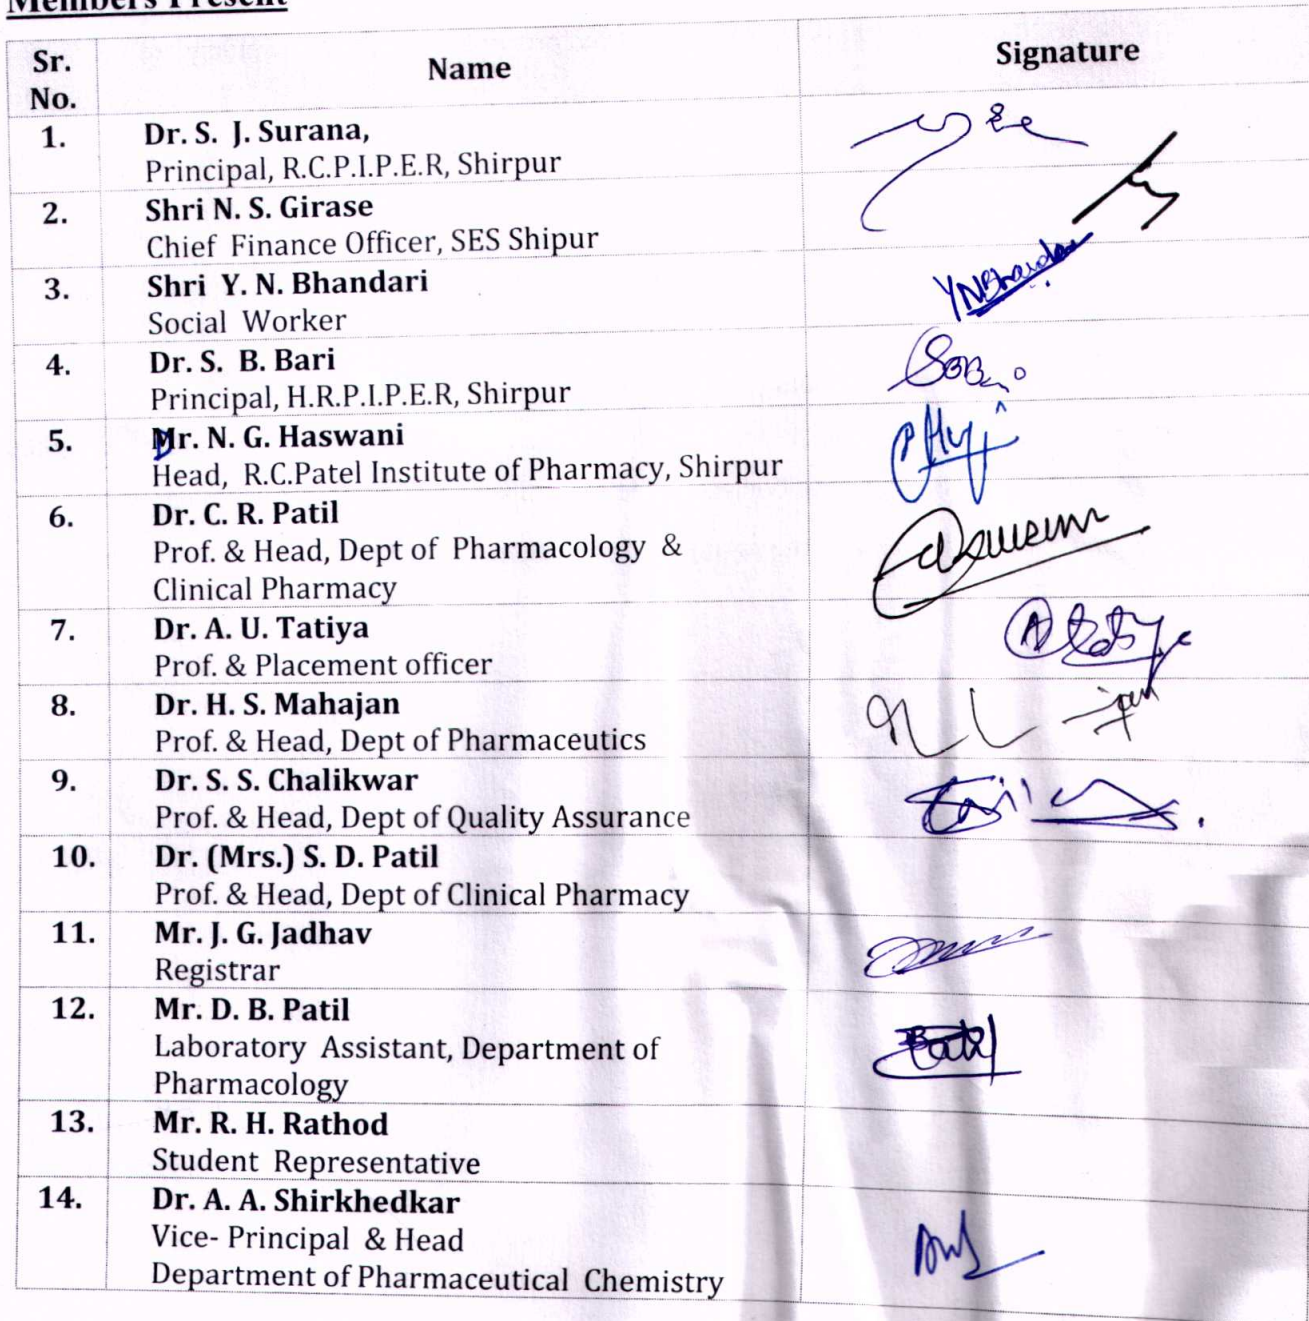 Members Present
Sr. No. Name Signature
1. Dr. S. J. Surana,
Principal, R.C.P.I.P.E.R, Shirpur
2. Shri N. S. Girase
Chief Finance Officer, SES Shipur
3. Shri Y. N. Bhandari
Social Worker
4. Dr. S. B. Bari
Principal, H.R.P.I.P.E.R, Shirpur
5. Dr. N. G. Haswani
Head, R.C.Patel Institute of Pharmacy, Shirpur
6. Dr. C. R. Patil
Prof. & Head, Dept of Pharmacology &
Clinical Pharmacy
7. Dr. A. U. Tatiya
Prof. & Placement officer
8. Dr. H. S. Mahajan
Prof. & Head, Dept of Pharmaceutics
9. Dr. S. S. Chalikwar
Prof. & Head, Dept of Quality Assurance
10. Dr. (Mrs.) S. D. Patil
Prof. & Head, Dept of Clinical Pharmacy
11. Mr. J. G. Jadhav
Registrar
12. Mr. D. B. Patil
Laboratory Assistant, Department of
Pharmacology
13. Mr. R. H. Rathod
Student Representative
14. Dr. A. A. Shirkhedkar
Vice- Principal & Head
Department of Pharmaceutical Chemistry